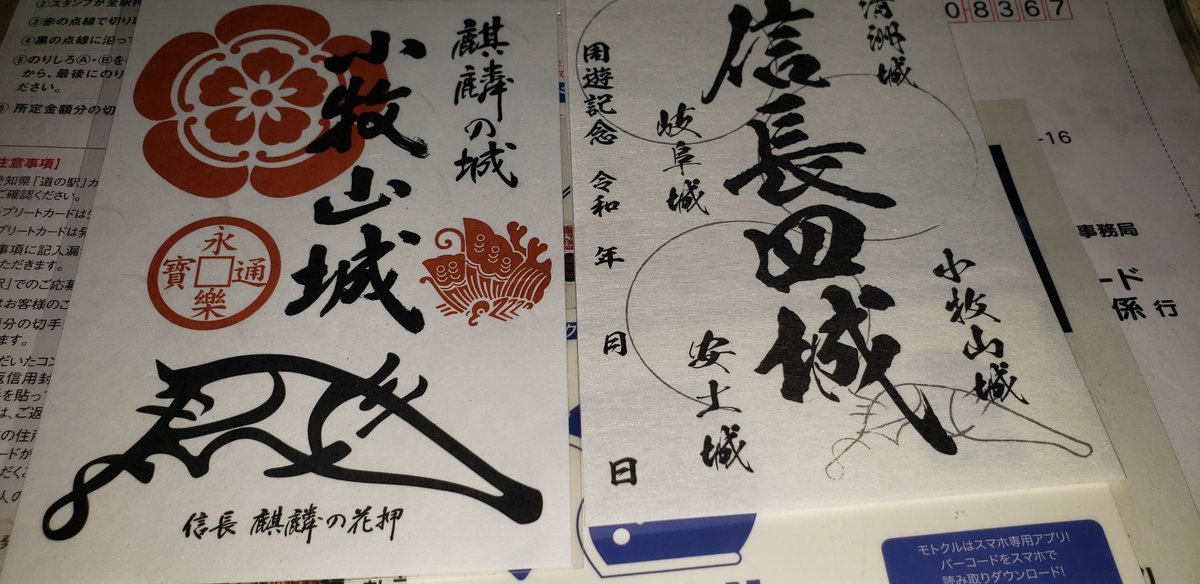 麒麟の城
小牧山城
永樂通寶
信長 麒麟の花押
清洲城
信長四城
岐阜城
小牧山城
安土城
周遊記念 令和 年 月 日
②スタンプが全駅
③赤の点線で切り取
④黒の点線に沿っ
⑤のりしろⒶ・Ⓑを
から、最後にのり
ださい。
⑥ 所定金額分の切
注意事項】
愛知県「道の駅」カ
ご確認ください。
プリートカードは
事項に記入漏
ただきます。
駅」でのご応募
はお客様のこ
分の切手
ます。
だいたコン
返信用封
手を貼って
は、ご返
の住所
ードが
だくよ
人の
08367
-16
事務局
ード
係 行
モトクルはスマホ専用アプリ!
バーコードをスマホで
読み取りダウンロード!